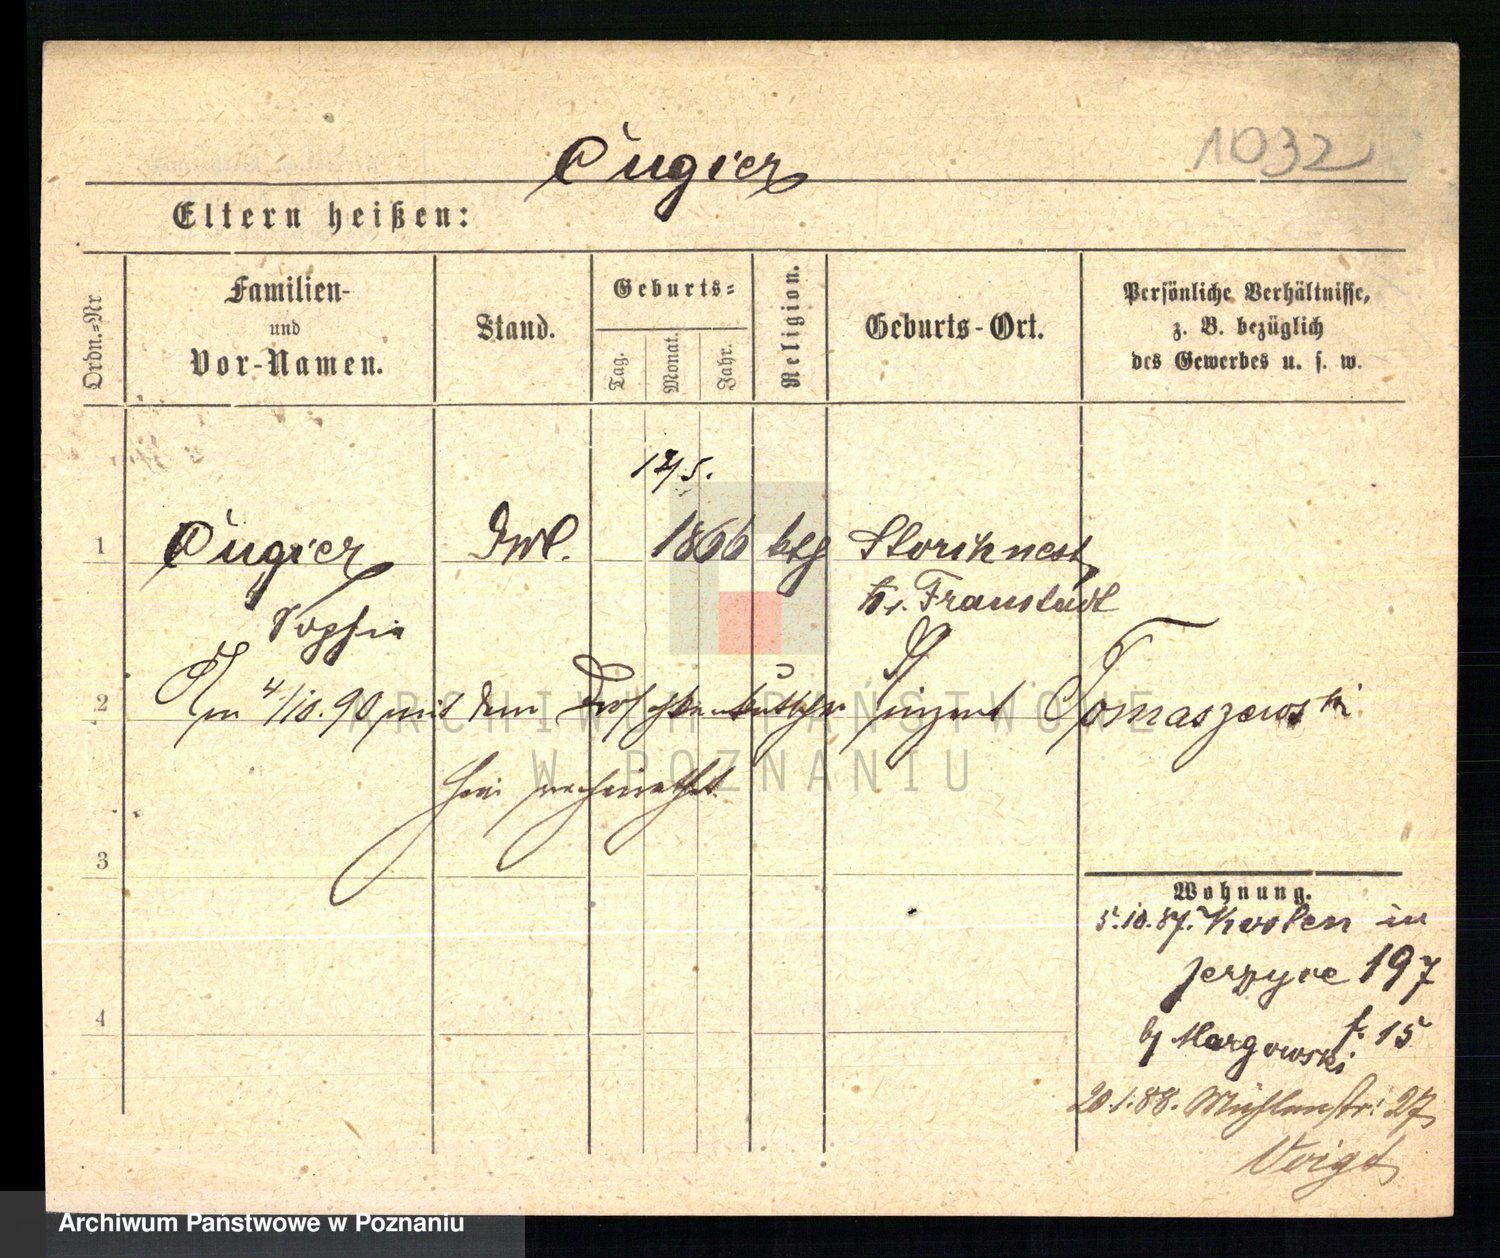 Cugier
1032
Eltern heißen:
Ordn.=Nr
Familien-
und
Vor-Namen.
Stand.
Geburts=
Tag.
Monat.
Jahr.
Religion.
Geburts-Ort.
Persönliche Verhältnisse,
z. B. bezüglich
des Gewerbes u. s. w.
1
Cugier
Sophie
12/5.
1866
kth
Storchnest
Kr. Fraustadt
2
Am 4/10. 90 mit dem Droschkenkutscher Vinzent Tomaszewski
hier verheirathet.
3
4
Wohnung.
5.10.87. Kolen in
Jerzyce 197
by Margowski f. 15
20.1.88. Mühlenstr: 27
Voigt
ARCHIWUM PAŃSTWOWE
W POZNANIU
Archiwum Państwowe w Poznaniu